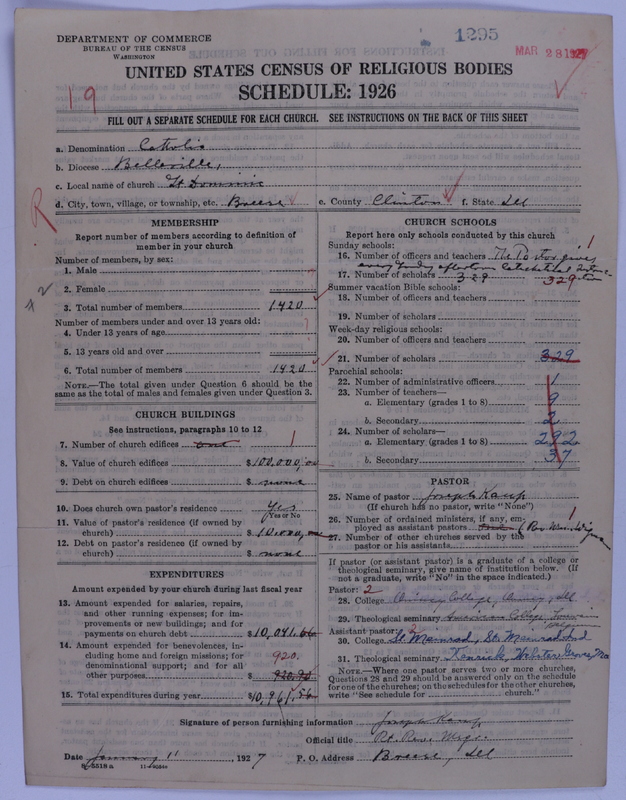 DEPARTMENT OF COMMERCE
BUREAU OF THE CENSUS
WASHINGTON
1295
MAR 28 1927
UNITED STATES CENSUS OF RELIGIOUS BODIES
SCHEDULE: 1926
19
FILL OUT A SEPARATE SCHEDULE FOR EACH CHURCH. SEE INSTRUCTIONS ON THE BACK OF THIS SHEET
a. Denomination Catholic
b. Diocese Belleville,
c. Local name of church St Dominic
d. City, town, village, or township, etc. Breese e. County Clinton f. State Ill
R
MEMBERSHIP
Report number of members according to definition of
member in your church
Number of members, by sex:
1. Male
2. Female
3. Total number of members 1420
Number of members under and over 13 years old:
4. Under 13 years of age
5. 13 years old and over
6. Total number of members 1420
NOTE.—The total given under Question 6 should be the
same as the total of males and females given under Question 3.
CHURCH BUILDINGS
See instructions, paragraphs 10 to 12
7. Number of church edifices one 1
8. Value of church edifices $100,000,00
9. Debt on church edifices $ none
10. Does church own pastor's residence Yes
Yes or No
11. Value of pastor's residence (if owned by
church) $10,000,
12. Debt on pastor's residence (if owned by
church) $ none
EXPENDITURES
Amount expended by your church during last fiscal year
13. Amount expended for salaries, repairs,
and other running expenses; for im-
provements or new buildings; and for
payments on church debt $10,041.66
14. Amount expended for benevolences, in-
cluding home and foreign missions; for
denominational support; and for all
other purposes $ 920.
15. Total expenditures during year $10,961.56
CHURCH SCHOOLS
Report here only schools conducted by this church
Sunday schools:
16. Number of officers and teachers 1
every Sunday afternoon Catechetical
17. Number of scholars 329 329
Summer vacation Bible schools:
18. Number of officers and teachers
19. Number of scholars
Week-day religious schools:
20. Number of officers and teachers
21. Number of scholars 329
Parochial schools:
22. Number of administrative officers 1
23. Number of teachers—
a. Elementary (grades 1 to 8) 9
b. Secondary 2
24. Number of scholars—
a. Elementary (grades 1 to 8) 292
b. Secondary 37
PASTOR
25. Name of pastor Joseph Kamp
(If church has no pastor, write "None")
26. Number of ordained ministers, if any, em-
ployed as assistant pastors 1
27. Number of other churches served by the
pastor or his assistants
If pastor (or assistant pastor) is a graduate of a college or
theological seminary, give name of institution below. (If
not a graduate, write "No" in the space indicated.)
Pastor: 2
28. College Quincy College, Quincy, Ill
29. Theological seminary American College, Louvain Belgium
Assistant pastor: 2
30. College St. Meinrad, St. Meinrad Ind
31. Theological seminary Kenrick, Webster Groves, Mo
NOTE.—Where one pastor serves two or more churches,
Questions 28 and 29 should be answered only on the schedule
for one of the churches; on the schedules for the other churches,
write "See schedule for church."
Signature of person furnishing information Joseph Kamp
Official title Rt. Rev. Msgr.
Date January 11 1927 P. O. Address Breese, Ill